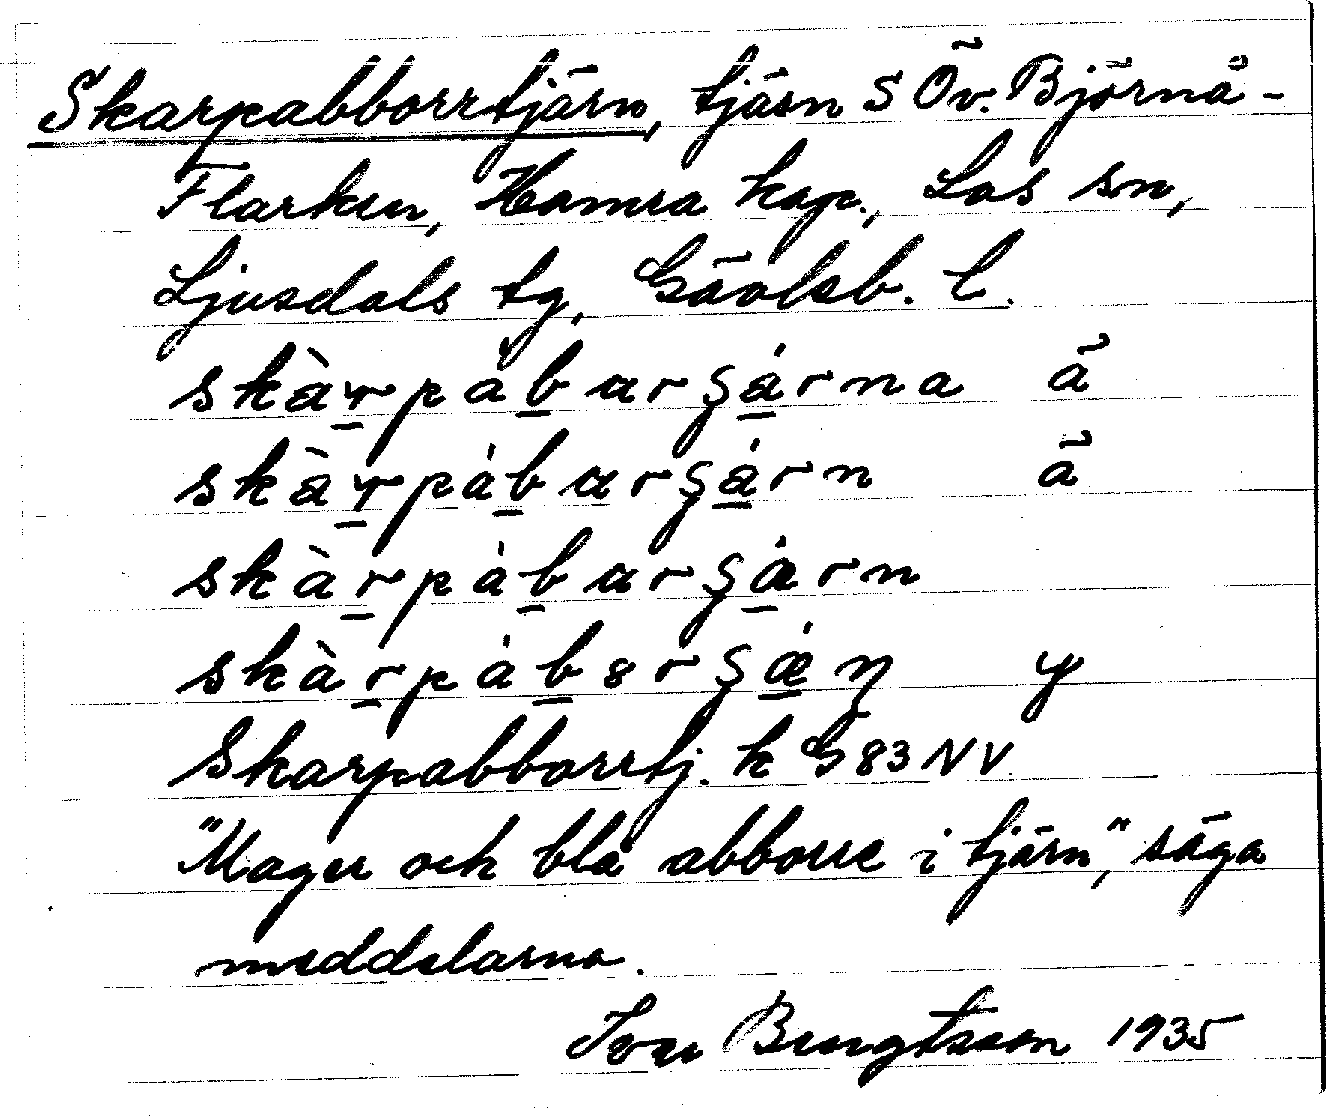 Skarpabborrtjärn, tjärn S Öv. Björnå-
Flarken, Hamra kap., Los sn,
Ljusdals tg, Gävleb. l.
skàrpábarʂárna ã
skàrpábarʂárn ã
skàrpábarʂárn
skàrpábɞrʂǽn y
Skarpabborrtj. k G 83 NV
"Mager och blå abborre i tjärn", säga
meddelarna.
Ivar Bengtsson 1935